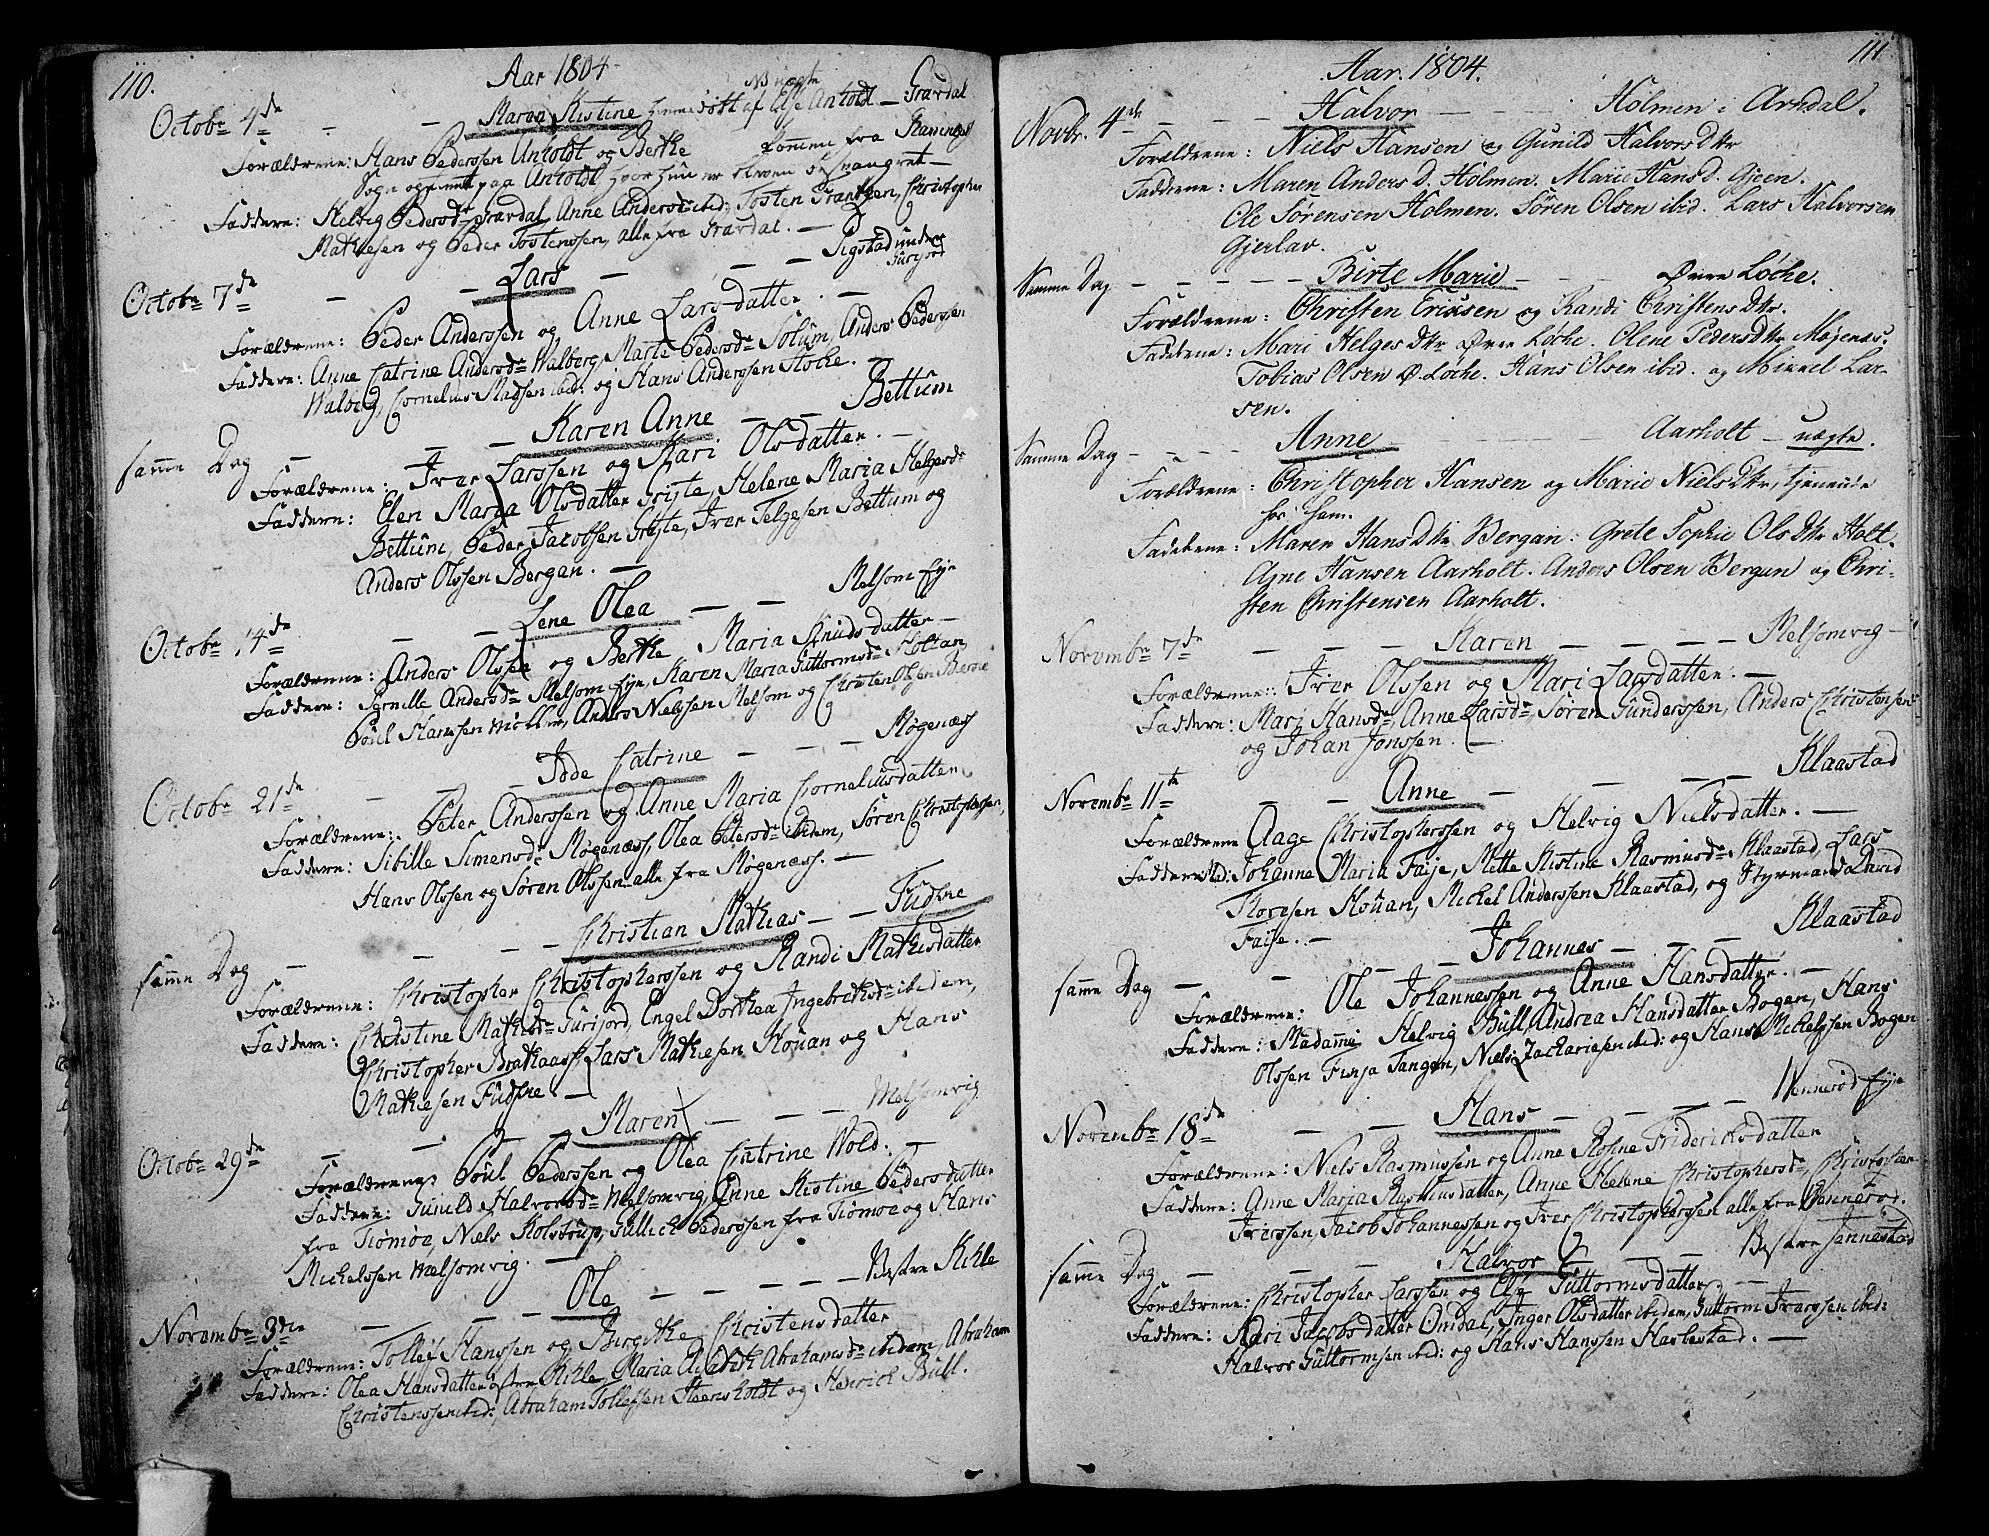 110.
Aar 1804
NB uægte
Octobr 4de - - Maren Kistine henne født af Else Anholdt - Grærdal
Forældrene: Hans Pedersen Anholdt og Berthe kommen fra
Sogn og tient paa Anholdt hvor hun er bleven besvangret -
Faddere: Helvig Pedersdr Grærdal, Anne Andersdr ibid: Tosten Frantzsen, Christopher
Mathiesen og Peder Tostenssen, alle fra Grærdal. -
Octobr 7de - - Lars - - - Sigstad under
Furejord
Forældrene: Peder Anderssen og Anne Larsdatter. -
Faddere: Anne Catrine Andersdr Walberg, Marte Pedersdr Solum, Anders Pedersen
Walberg, Cornelius Madsen ibid: og Hans Anderssen Stokke. -
samme Dag - - - Karen Anne - - Bettum
Forældrene: Iver Larssen og Kari Olsdatter. -
Faddere: Elen Maria Olsdatter Freste, Helene Maria Helgesdr
Bettum, Peder Jacobsen Freste, Iver Helgesen Bettum og
Anders Olssen Bergan. -
Octobr 14de - - Lene Olea - - Melsom Eje
Forældrene: Anders Olssen og Berthe Maria Knudsdatter -
Faddere: Pernille Andersdr Melsom Eje, Karen Maria Guttormsdr Holtan,
Poul Hanssen Møller, Anders Nielssen Melsom og Christen Olssen Berge
Octobr 21de - - Inde Catrine - - - Møgenæss
Forældrene: Peter Anderssen og Anne Maria Corneliusdatter
Faddere: Sibille Simensdr Møgenæss, Olea Petersdr ibidem, Søren Christophersen,
Hans Olssen og Søren Olssen alle fra Møgenæss. -
samme Dag - - - - Christian Mathias - - Fudsne
Forældrene: Christopher Christopherssen og Randi Mathisdatter
Faddere: Christine Mathisdr Furejord, Engel Dorthea Ingebrethsdr ibidem,
Christopher Brathaass, Lars Mathiesen Houan og Hans
Mathiesen Fudsne. -
Octobr 29de - - - Maren - - - Melsomvig
Forældrene: Poul Pederssen og Olea Catrine Wold: -
Faddere: Gunild Halvorsdr Melsomvig, Anne Kistine Pedersdatter
fra Tiømøe, Niels Kolstrup, Gullich Pederssen fra Tiømøe og Hans
Michelssen Melsomvig. -
Novembr 3die - - - Ole - - - - Vestre Kihle
Forældrene: Tollef Hanssen og Birgithe Christensdatter
Faddere: Olea Hansdatter østre Kihle, Maria Elisabeth Abrahamsdr ibidem, Abraham
Christenssen ibid:, Abraham Tollefsen Steensholdt og Henrich Bull.
111
Aar. 1804.
Novbr. 4de - - Halvor - - - Holmen i Arndal.
Forældrene: Niels Hansen og Gunild HalvorsDtr
Fadderne: Maren Anders D. Holmen. Marie Hansd. Gjeen.
Ole Sørensen Holmen. Søren Olsen ibid. Lars Halvorsen
Gjerlav.
Samme Dag - - - - - Birte Marie - - - Øvre Løche.
Forældrene: Christen Ericksen og Randi ChristensDtr.
Fadderne: Mari HelgesDtr Øvre Løche. Olene PedersDtr Møjenes.
Tobias Olsen Ø. Løche. Hans Olsen ibid. og Mikkel Lar-
sen.
Samme Dag - - - - Anne - - - Aarholt - uægte.
Forældrene: Christopher Hansen og Marie NielsDtr, tjenende
hos ham.
Fadderne: Maren HansDtr Bergan: Grete Sophie OlsDtr Holt.
Ajne Hansen Aarholt. Anders Olsen Bergan og Chri-
sten Christensen Aarholt.
Novembr 7de - - - - Karen - - - - Melsomvig -
Forældrene: Iver Olssen og Mari Larsdatter. -
Faddere: Mari Hansdr, Anne Larsdr, Søren Gunderssen, Anders Christensen
og Johan Jonssen. -
Novembr 11te - - Anne - - - Klaastad
Forældrene Aage Christopherssen og Helvig Nielsdatter. -
Faddere: Md: Johanne Maria Faije, Mette Kistine Rasmusdr Klaastad, Lars
Thoresen Houan, Michel Anderssen Klaastad, og Styrmand David
Faije. -
samme Dag - - - - Johannes - - - Klaastad
Forældrene: Ole Johannessen og Anne Hansdatter. -
Faddere: Madamme Helvig Bull, Andrea Hansdatter Bogen, Hans
Olssen Finja Tangen, Niels Zachariesen ibid: og Hans Michelssen Bogen
Novembr 18de - - Hans - - - Vennerød Eje
Forældrene: Niels Rasmussen og Anne Sophie Fridericksdatter
Faddere: Anne Maria Rasmusdatter, Anne Helene Christophersdr, Christopher
Iverssen, Jacob Johannessen og Iver Christopherssen alle fra Vennerød.
samme Dag - - - - Halvor - - - Vestre Jennestad
Forældrene: Christopher Larssen og Else Guttormsdatter -
Faddere: Kari Jacobsdatter Omdal, Inger Olsdatter ibidem, Guttorm Iverssen ibid:
Halvor Guttormsen ibid: og Hans Hanssen Haslestad. -